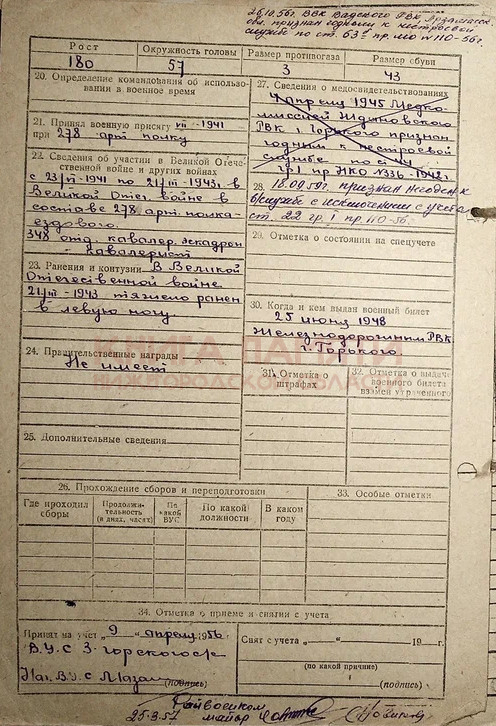 26.10.56г. ВВК Вадского РВК Арзамасск.
обл. признан годным к нестроевой
службе по ст. 63 пр. МО № 110-56г.
Рост
Окружность головы
Размер противогаза
Размер обуви
180
57
3
43
20. Определение командования об использовании в военное время
21. Принял военную присягу VII-1941
при 278 арт. полку
22. Сведения об участии в Великой Отечественной войне и других войнах
с 23/VII-1941 по 21/III-1943г. в
Великой Отеч. войне в
составе 278 арт. полка-
ездового.
348 отд. кавалер. эскадрон
- кавалерист
23. Ранения и контузии В Великой
Отечественной войне
21/III-1943 тяжело ранен
в левую ногу
24. Правительственные награды
Не имеет
25. Дополнительные сведения
27. Сведения о медосвидетельствованиях
4 апреля 1945 Медко-
миссией Ждановского
РВК г. Горького признан
годным к нестроевой
службе по ст. 44
гр. I пр НКО №336-1942г.
28. 18.09.59г. признан негоден к
в/службе с исключением с учета
ст. 22 гр. I пр. 110-56.
29. Отметка о состоянии на спецучете
30. Когда и кем выдан военный билет
25 июня 1948
Железнодорожным РВК
г. Горького
31. Отметка о штрафах
32. Отметка о выдаче военного билета взамен утраченного
КНИГА ПАМЯТИ
НИЖЕГОРОДСКОЙ ОБЛАСТИ
26. Прохождение сборов и переподготовки
33. Особые отметки
Где проходил сборы
Продолжительность (в днях, часах)
По какой ВУС
По какой должности
В каком году
34. Отметка о приеме и снятии с учета
Принят на учет „9“ апреля 1956 г.
Снят с учета „ “ 19 г.
В.У.С
(по какой причине)
Нач. В.У.С
(подпись)
(подпись)
Райвоенком
25.3.57 майор